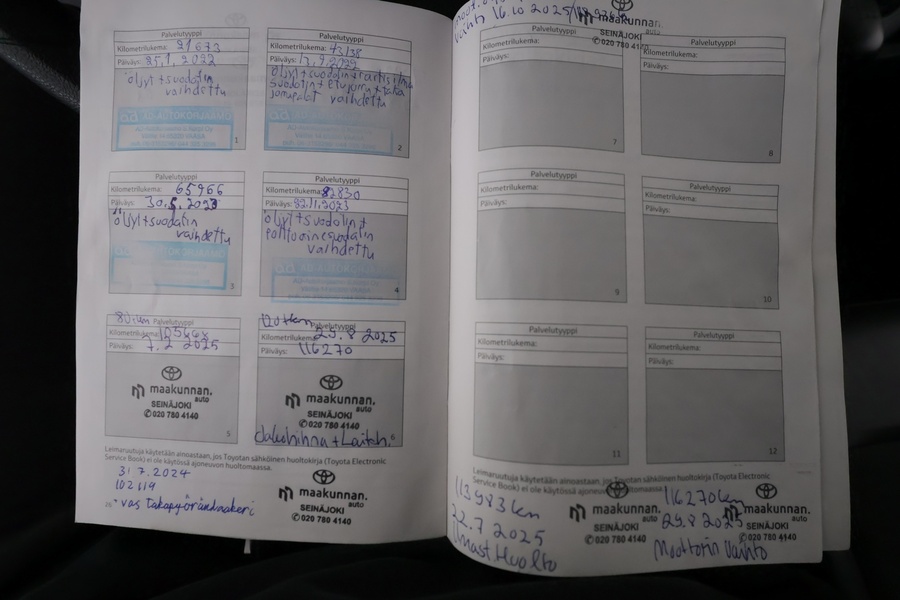 Palvelutyyppi
Kilometrilukema: 21 673
Päiväys: 25.1.2022
öljyt + suodatin
vaihdettu
AD AUTOKORJAAMO
1
Palvelutyyppi
Kilometrilukema: 43138
Päiväys: 13.9.2022
öljyt + suodatin + raitisilma
suodatin + etujarru + taka
jarrupalat vaihdettu
AD AUTOKORJAAMO
2
Palvelutyyppi
Kilometrilukema: 65966
Päiväys: 30.5.2023
öljyt + suodatin
vaihdettu
AD AUTOKORJAAMO
3
Palvelutyyppi
Kilometrilukema: 82830
Päiväys: 22.11.2023
öljyt + suodatin +
polttoainesuodatin
vaihdettu
AD AUTOKORJAAMO
4
Palvelutyyppi
Kilometrilukema:
Päiväys: 7.2 2025
maakunnan.
auto
SEINÄJOKI
✆ 020 780 4140
5
120 tkm
Palvelutyyppi
Kilometrilukema: 25.8 2025
Päiväys: 116270
maakunnan.
auto
SEINÄJOKI
✆ 020 780 4140
6
Leimaruutuja käytetään ainoastaan, jos Toyotan sähköinen huoltokirja (Toyota Electronic
Service Book) ei ole käytössä ajoneuvon huoltomaassa.
31.7.2024
102 614
vas takapyöränlaakeri
maakunnan.
auto
SEINÄJOKI
✆ 020 780 4140
Vaihto 16.10 2025
maakunnan.
SEINÄJOKI
✆ 020 780 4140
Palvelutyyppi
Kilometrilukema:
Päiväys:
7
Palvelutyyppi
Kilometrilukema:
Päiväys:
8
Palvelutyyppi
Kilometrilukema:
Päiväys:
9
Palvelutyyppi
Kilometrilukema:
Päiväys:
10
Palvelutyyppi
Kilometrilukema:
Päiväys:
11
Palvelutyyppi
Kilometrilukema:
Päiväys:
12
Leimaruutuja käytetään ainoastaan, jos Toyotan sähköinen huoltokirja (Toyota Electronic
Service Book) ei ole käytössä ajoneuvon huoltomaassa.
113983 km
22.7 2025
Ilmast Huolto
maakunnan.
auto
SEINÄJOKI
✆ 020 780 4140
116270 km
29.8 2025
Moottorin vaihto
maakunnan.
auto
SEINÄJOKI
✆ 020 780 4140